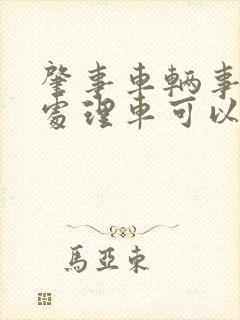 肇事車輛事
處理車可以
馬亞東